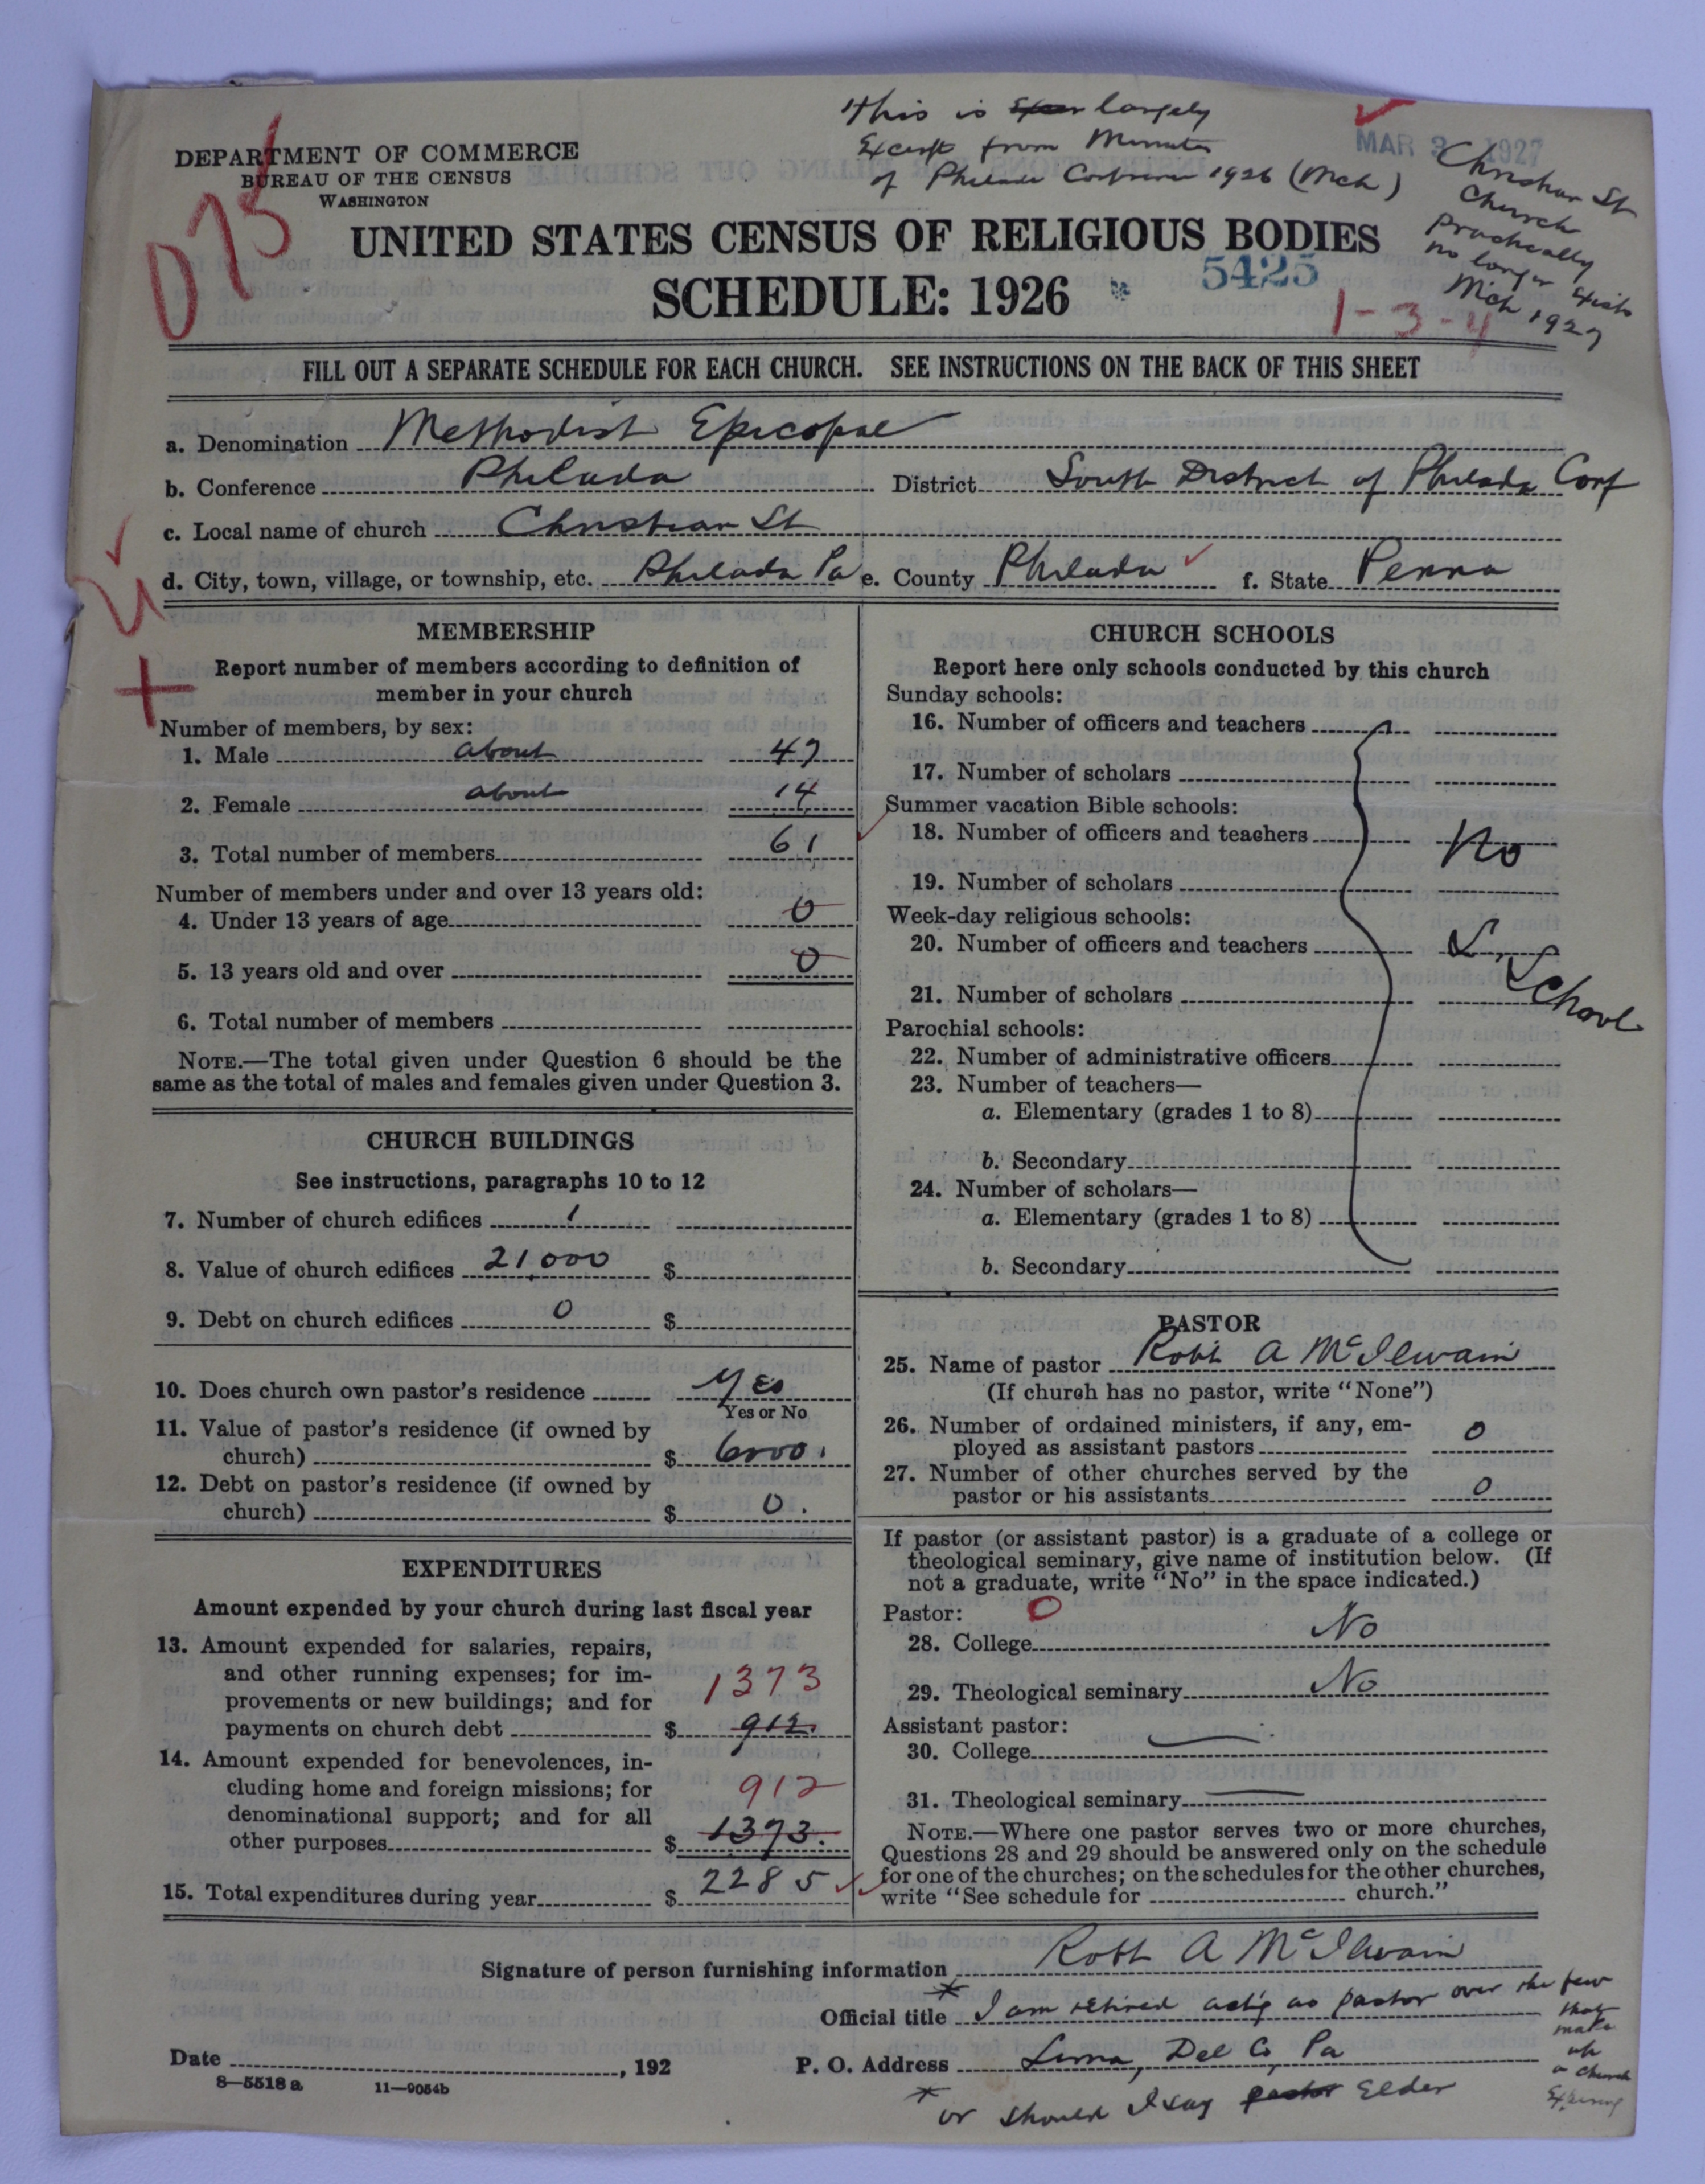 This is largely
Excerpt from Minutes
of Philada Conference 1926 (Mch)
MAR 3 1927
Christian St
Church
practically
no longer exists
Mch 1927
DEPARTMENT OF COMMERCE
BUREAU OF THE CENSUS
WASHINGTON
UNITED STATES CENSUS OF RELIGIOUS BODIES
SCHEDULE: 1926
5425
1-3-4
FILL OUT A SEPARATE SCHEDULE FOR EACH CHURCH. SEE INSTRUCTIONS ON THE BACK OF THIS SHEET
a. Denomination Methodist Episcopal
b. Conference Philada District South District of Philada Conf
c. Local name of church Christian St
d. City, town, village, or township, etc. Philada Pa e. County Philada f. State Penna
MEMBERSHIP
Report number of members according to definition of
member in your church
Number of members, by sex:
1. Male about 47
2. Female about 14
3. Total number of members 61
Number of members under and over 13 years old:
4. Under 13 years of age 0
5. 13 years old and over 0
6. Total number of members
NOTE.—The total given under Question 6 should be the
same as the total of males and females given under Question 3.
CHURCH BUILDINGS
See instructions, paragraphs 10 to 12
7. Number of church edifices 1
8. Value of church edifices 21,000 $
9. Debt on church edifices 0 $
10. Does church own pastor's residence Yes
Yes or No
11. Value of pastor's residence (if owned by
church) $ 6000.
12. Debt on pastor's residence (if owned by
church) $ 0.
EXPENDITURES
Amount expended by your church during last fiscal year
13. Amount expended for salaries, repairs,
and other running expenses; for im-
provements or new buildings; and for 1373
payments on church debt $ 912.
14. Amount expended for benevolences, in-
cluding home and foreign missions; for 912
denominational support; and for all
other purposes $ 1373.
15. Total expenditures during year $ 2285
CHURCH SCHOOLS
Report here only schools conducted by this church
Sunday schools:
16. Number of officers and teachers
17. Number of scholars
Summer vacation Bible schools:
18. Number of officers and teachers No
19. Number of scholars
Week-day religious schools:
20. Number of officers and teachers S.
21. Number of scholars School
Parochial schools:
22. Number of administrative officers
23. Number of teachers—
a. Elementary (grades 1 to 8)
b. Secondary
24. Number of scholars—
a. Elementary (grades 1 to 8)
b. Secondary
PASTOR
25. Name of pastor Robt A McIlwain
(If church has no pastor, write "None")
26. Number of ordained ministers, if any, em-
ployed as assistant pastors 0
27. Number of other churches served by the
pastor or his assistants 0
If pastor (or assistant pastor) is a graduate of a college or
theological seminary, give name of institution below. (If
not a graduate, write "No" in the space indicated.)
Pastor: 0
28. College No
29. Theological seminary No
Assistant pastor:
30. College
31. Theological seminary
NOTE.—Where one pastor serves two or more churches,
Questions 28 and 29 should be answered only on the schedule
for one of the churches; on the schedules for the other churches,
write "See schedule for church."
Signature of person furnishing information Robt A McIlwain
Official title * I am retired act'g as pastor over the few
that
make
up
a church
Expiring
Date , 192 P. O. Address Lima, Del Co, Pa
8—5518a 11—9054b
* or should I say pastor Elder